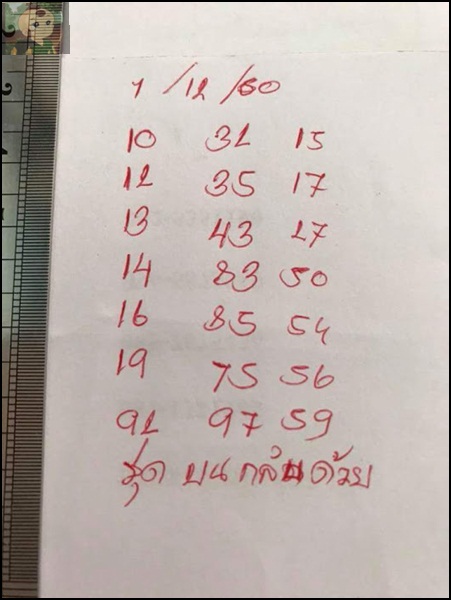 1/12/60
10 32 15
12 35 17
13 43 27
14 83 50
16 85 54
19 75 56
92 97 59
ชุด บน กลับ ด้วย